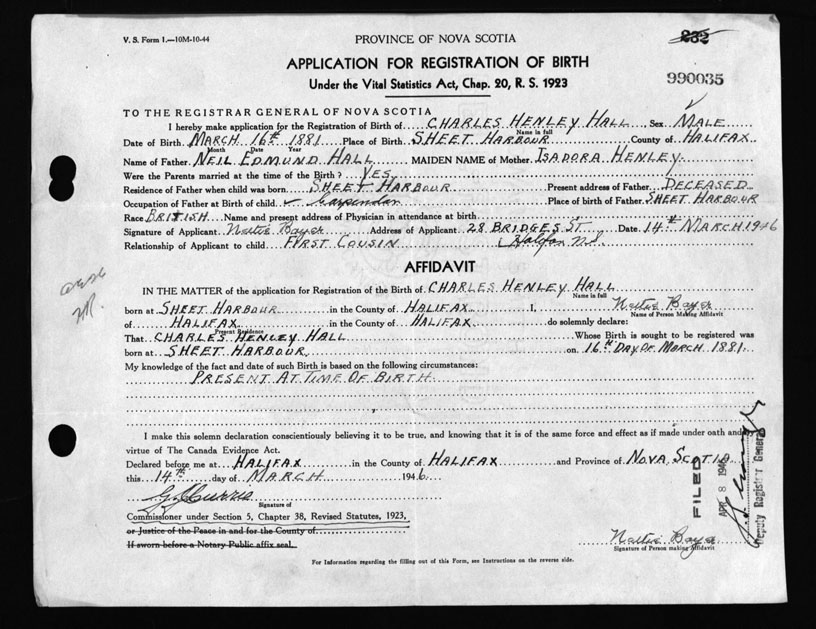 V. S. Form 1.—10M-10-44
PROVINCE OF NOVA SCOTIA
232
APPLICATION FOR REGISTRATION OF BIRTH
990035
Under the Vital Statistics Act, Chap. 20, R. S. 1923
TO THE REGISTRAR GENERAL OF NOVA SCOTIA
I hereby make application for the Registration of Birth of CHARLES HENLEY HALL Sex MALE
Name in full
Date of Birth MARCH 16th 1881 Place of Birth SHEET HARBOUR County of HALIFAX
Month Date Year
Name of Father NEIL EDMUND HALL MAIDEN NAME of Mother ISADORA HENLEY
Were the Parents married at the time of the Birth? YES
Residence of Father when child was born SHEET HARBOUR Present address of Father DECEASED
Occupation of Father at Birth of child Carpender Place of birth of Father SHEET HARBOUR
Race BRITISH Name and present address of Physician in attendance at birth
Signature of Applicant Nettie Bayer Address of Applicant 28 BRIDGES ST. Date 14th MARCH 1946
Relationship of Applicant to child FIRST COUSIN Halifax N.S.
AFFIDAVIT
IN THE MATTER of the application for Registration of the Birth of CHARLES HENLEY HALL
Name in full
born at SHEET HARBOUR in the County of HALIFAX I, Nettie Bayer
Name of Person Making Affidavit
of HALIFAX in the County of HALIFAX do solemnly declare:
Present Residence
That CHARLES HENLEY HALL Whose Birth is sought to be registered was
born at SHEET HARBOUR on 16th DAY OF MARCH 1881
My knowledge of the fact and date of such Birth is based on the following circumstances:
PRESENT AT TIME OF BIRTH
I make this solemn declaration conscientiously believing it to be true, and knowing that it is of the same force and effect as if made under oath and by
virtue of The Canada Evidence Act.
Declared before me at HALIFAX in the County of HALIFAX and Province of NOVA SCOTIA
this 14th day of MARCH 1946
Signature of
Commissioner under Section 5, Chapter 38, Revised Statutes, 1923,
or Justice of the Peace in and for the County of
If sworn before a Notary Public affix seal.
Nettie Bayer
Signature of Person making Affidavit
FILED
APR 8 1946
Deputy Registrar General
For Information regarding the filling out of this Form, see Instructions on the reverse side.